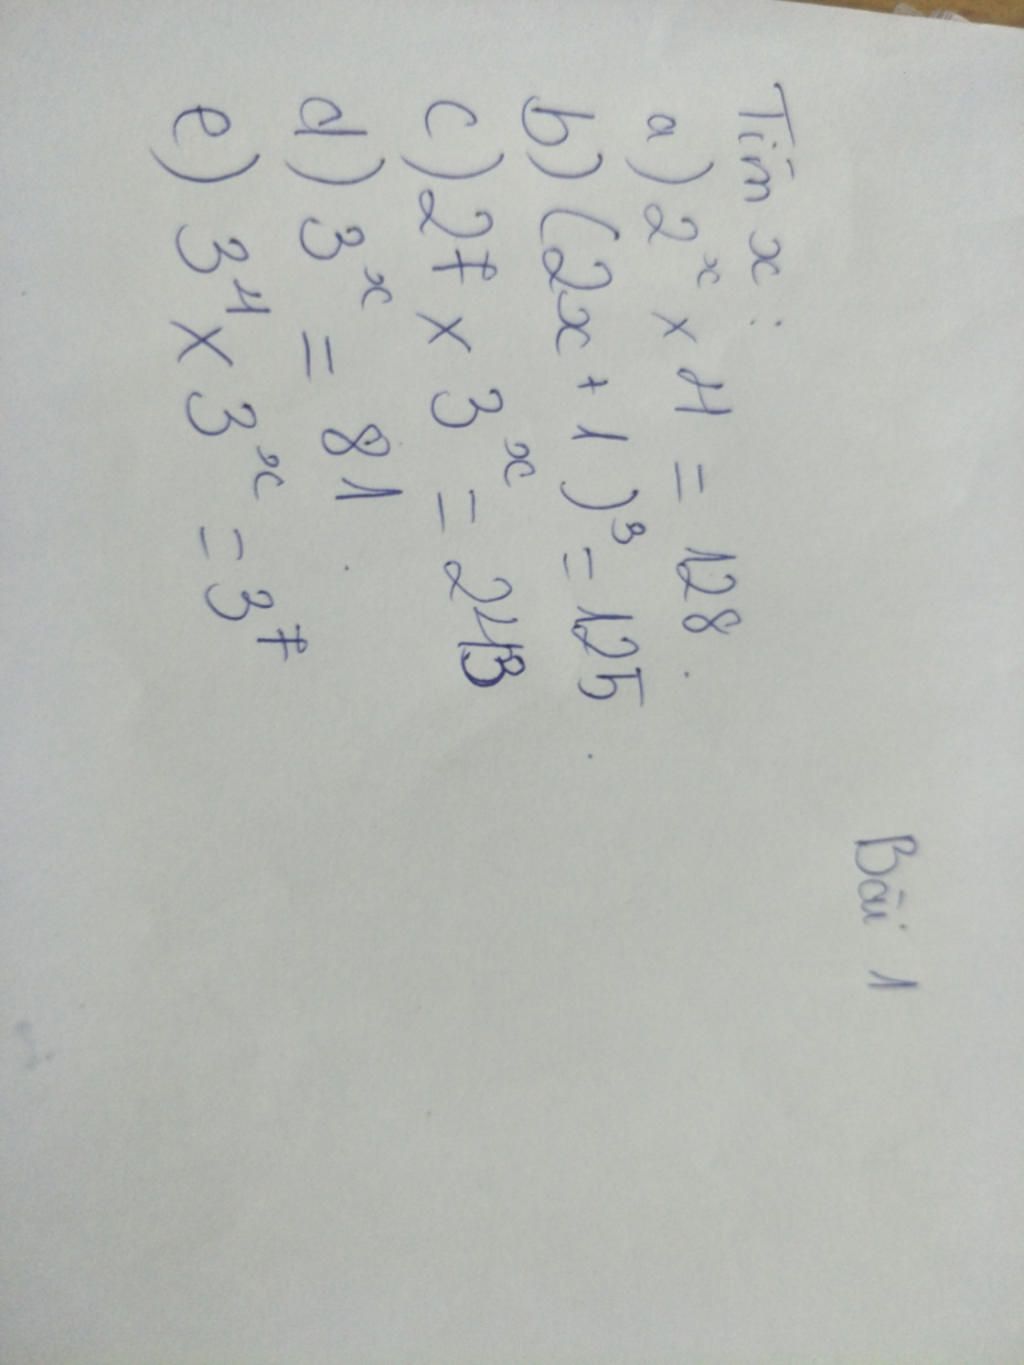 Bài 1
Tìm x :
a) 2ˣ x 4 = 128.
b) (2x + 1)³ = 125.
c) 27 x 3ˣ = 243
d) 3ˣ = 81.
e) 3⁴ x 3ˣ = 3⁷